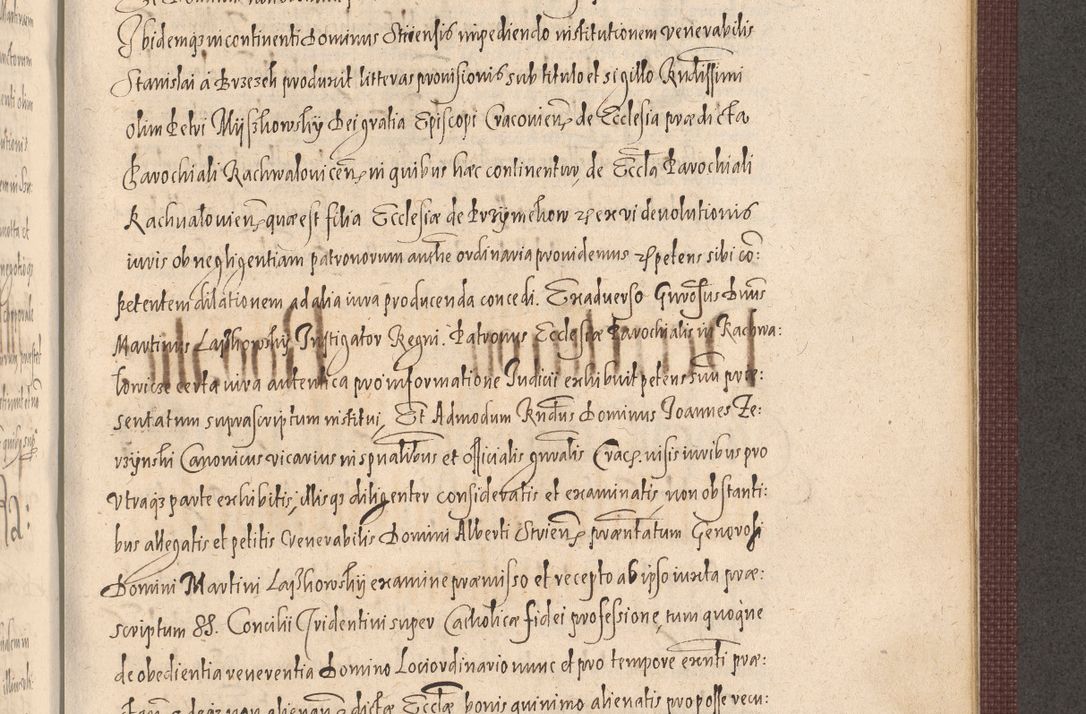 Ibidemq3 incontinenti Dominus Striensis impediendo institutionem venerabilis
Stanislai á Brzezek produxit litteras prouisionis sub titulo et sigillo Rndissimi
olim Petri Myszkowsky Dei gratia Episcopi Cracouien, de Ecclesia praedicta
Parochiali Rachwalouicen, in quibus haec continentur, de Eccla Parochiali
Rachualouien, quae est filia Ecclesiae de Przymekow et ex vi deuolutionis
iuris ob negligentiam patronorum authe ordinaria prouidemus et petens sibi co:
petentem dilationem ad alia iura producenda concedi. Ex aduerso Gnrosus Dnus
Martinus Lapszhowsky Instigator Regni. Patronus Ecclesiae Parochialis in Rachwa:
lowice certa iura autentica pro informatione Iudicii exhibuit petens suum prae:
sentatum suprascriptum institui, Et Admodum Rndus Dominus Joannes Ze:
rzynski Canonicus vicarius in spualibus et officialis gnralis Crac. visis iuribus pro
vtraq3 parte exhibitis, illisq3 diligenter consideratis et examinatis, non obstanti:
bus allegatis et petitis Venerabilis Domini Alberti Strien, praentatum Generosi
Domini Martini Lapszhowsky examine praemisso et recepto ab ipso iuxta prae:
scriptum SS. Concilii Tridentini super Catholicae fidei professione, tum quoque
de obedientia reuerentia Domino Lociordinario nunc et pro tempore exnti prae:
dictae Ecclae bonis quinimo alienatis pro posse recu: